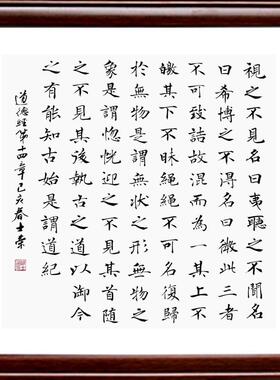 視之不見名曰夷聽之不聞名
曰希博之不得名曰微此三者
不可致詰故混而為一其上不
皦其下不昧繩繩不可名復歸
於無物是謂無狀之形無物之
象是謂惚恍迎之不見其首隨
之不見其後執古之道以御今
之有能知古始是謂道紀
道德經第十四章己亥春士荣